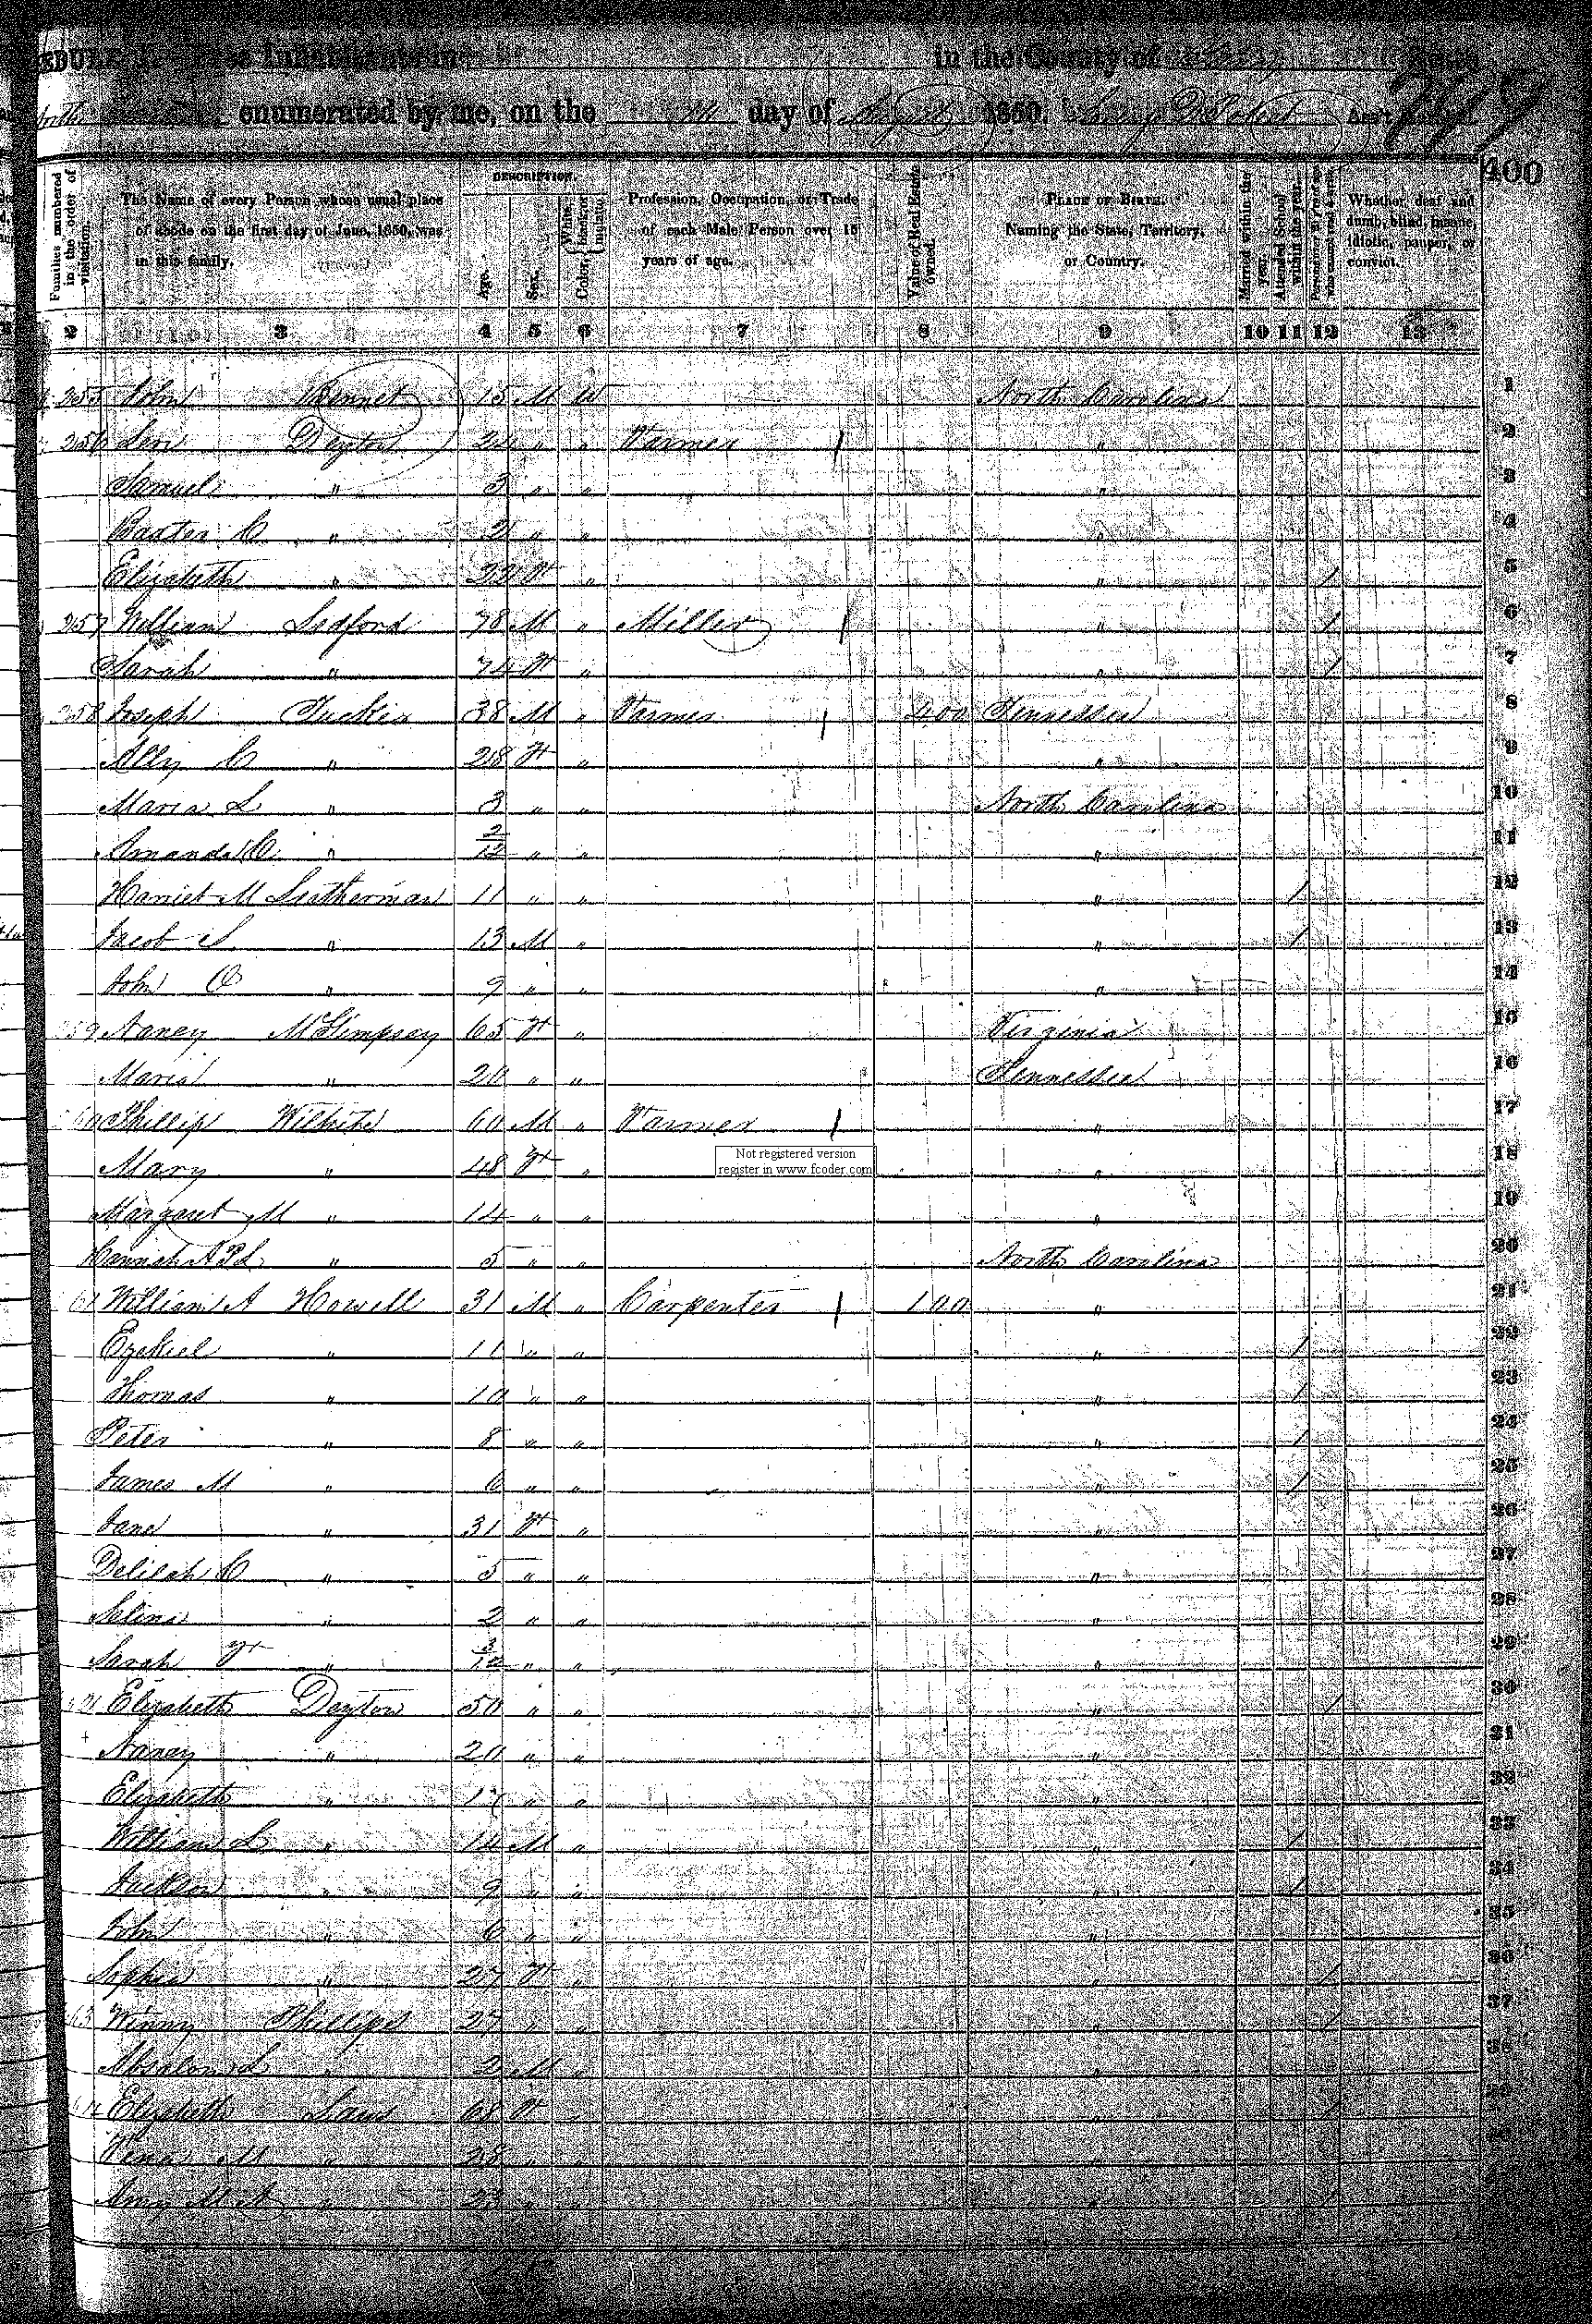 EDULE I.—Free Inhabitants in in the County of State
North enumerated by me, on the day of August 1850. Ass't
400
Families numbered in the order of visitation.
The Name of every Person whose usual place of abode on the first day of June, 1850, was in this family.
DESCRIPTION.
Age.
Sex.
Color, { White, black, or mulatto.
Profession, Occupation, or Trade of each Male Person over 15 years of age.
Value of Real Estate owned.
PLACE OF BIRTH. Naming the State, Territory, or Country.
Married within the year.
Attended School within the year.
Persons over 20 y'rs of age who cannot read & write.
Whether deaf and dumb, blind, insane, idiotic, pauper, or convict.
2 3 4 5 6 7 8 9 10 11 12 13
255 John Bennet 15 M W North Carolina 1
256 Dayton 24 " " Farmer / " 2
Samuel " 3 " " " 3
Baxter C " 2 " " " 4
Elizabeth " 22 F " " / 5
257 William Ledford 78 M " Miller / " / 6
Sarah " 74 F " / 7
258 Joseph Tucker 38 M " Farmer / 400 Tennessee 8
Ally C " 28 F " " 9
Maria L " 3 " " North Carolina 10
Amanda C " 2/12 " " " 11
Harriet M Leatherman 11 " " " / 12
Jacob S " 13 M " " / 13
John O " 9 " " " 14
259 Nancy McGimpsey 65 F " Virginia 15
Maria " 20 " " Tennessee 16
60 Phillip Wilhite 60 M " Farmer / " 17
Not registered version
register in www.fcoder.com
Mary " 48 F " " 18
Margaret M " 14 " " " 19
Hannah " 5 " " North Carolina 20
61 William A Howell 31 M " Carpenter / 100 " 21
Ezekiel " 11 " " " / 22
Thomas " 10 " " " / 23
Peter " 8 " " " / 24
James M " 6 " " " / 25
Jane " 31 F " " 26
Delilah C " 5 " " " 27
Selina " 2 " " " 28
Sarah F " 3/12 " " " 29
Elizabeth Dayton 50 " " / 30
Nancy " 20 " " " 31
Elizabeth " 17 " " " 32
William L " 14 M " " / 33
Jackson " 9 " " " / 34
John " 6 " " " 35
Sophia " 27 F " " / 36
63 Winny Phillips 27 " " " / 37
Absalom L " 2 M " " 38
64 Elizabeth Laws 68 F / 39
M " 28
Amy M A " 23